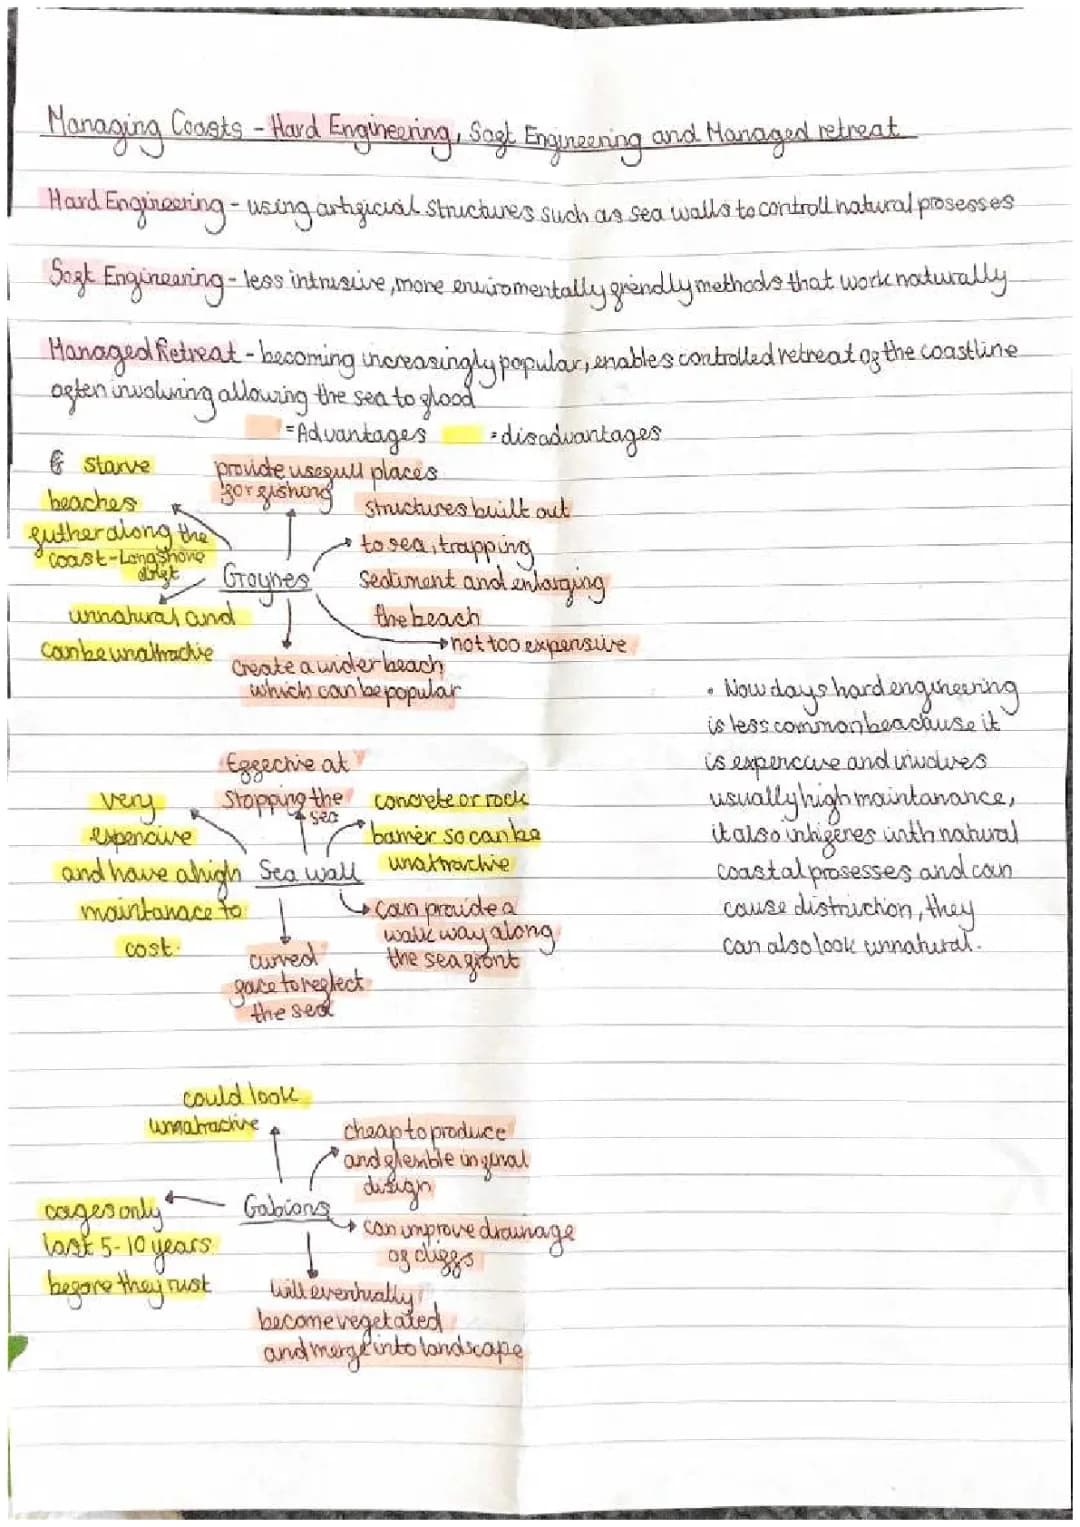 Managing Coasts - Hard Engineering, Soft Engineering and Managed retreat
Hard Engineering - using artificial structures such as sea walls to controll natural prosesses
Soft Engineering - less intrusive, more enviromentally friendly methods that work naturally
Managed Retreat - becoming increasingly popular, enables controlled retreat of the coastline
often involving allowing the sea to flood
=Advantages =disadvantages
starve
beaches
futher along the
coast - Longshore
drift
unnatural and
can be unattractive
provide usefull places
for fishing
structures built out
to sea, trapping
sediment and enlarging
the beach
Groynes
not too expensive
create a wider beach
which can be popular
• Now days hard engineering
is less common beacause it
is expencive and involves
usually high maintanance,
it also inhiferes with natural
coastal prosesses and can
cause distruction, they
can also look unnatural.
Effective at
stopping the
sea
very
expencive
and have a high
maintanace to
cost.
concrete or rock
barrier so can be
unattractive
Sea wall
can provide a
walk way along
the sea front
curved
face to reflect
the sea
could look
unnatractive
cheap to produce
and flexible in final
design
Gabions
cages only
last 5-10 years
before they rust
can improve drainage
of cliffs
will eventually
become vegetated
and merge into landscape